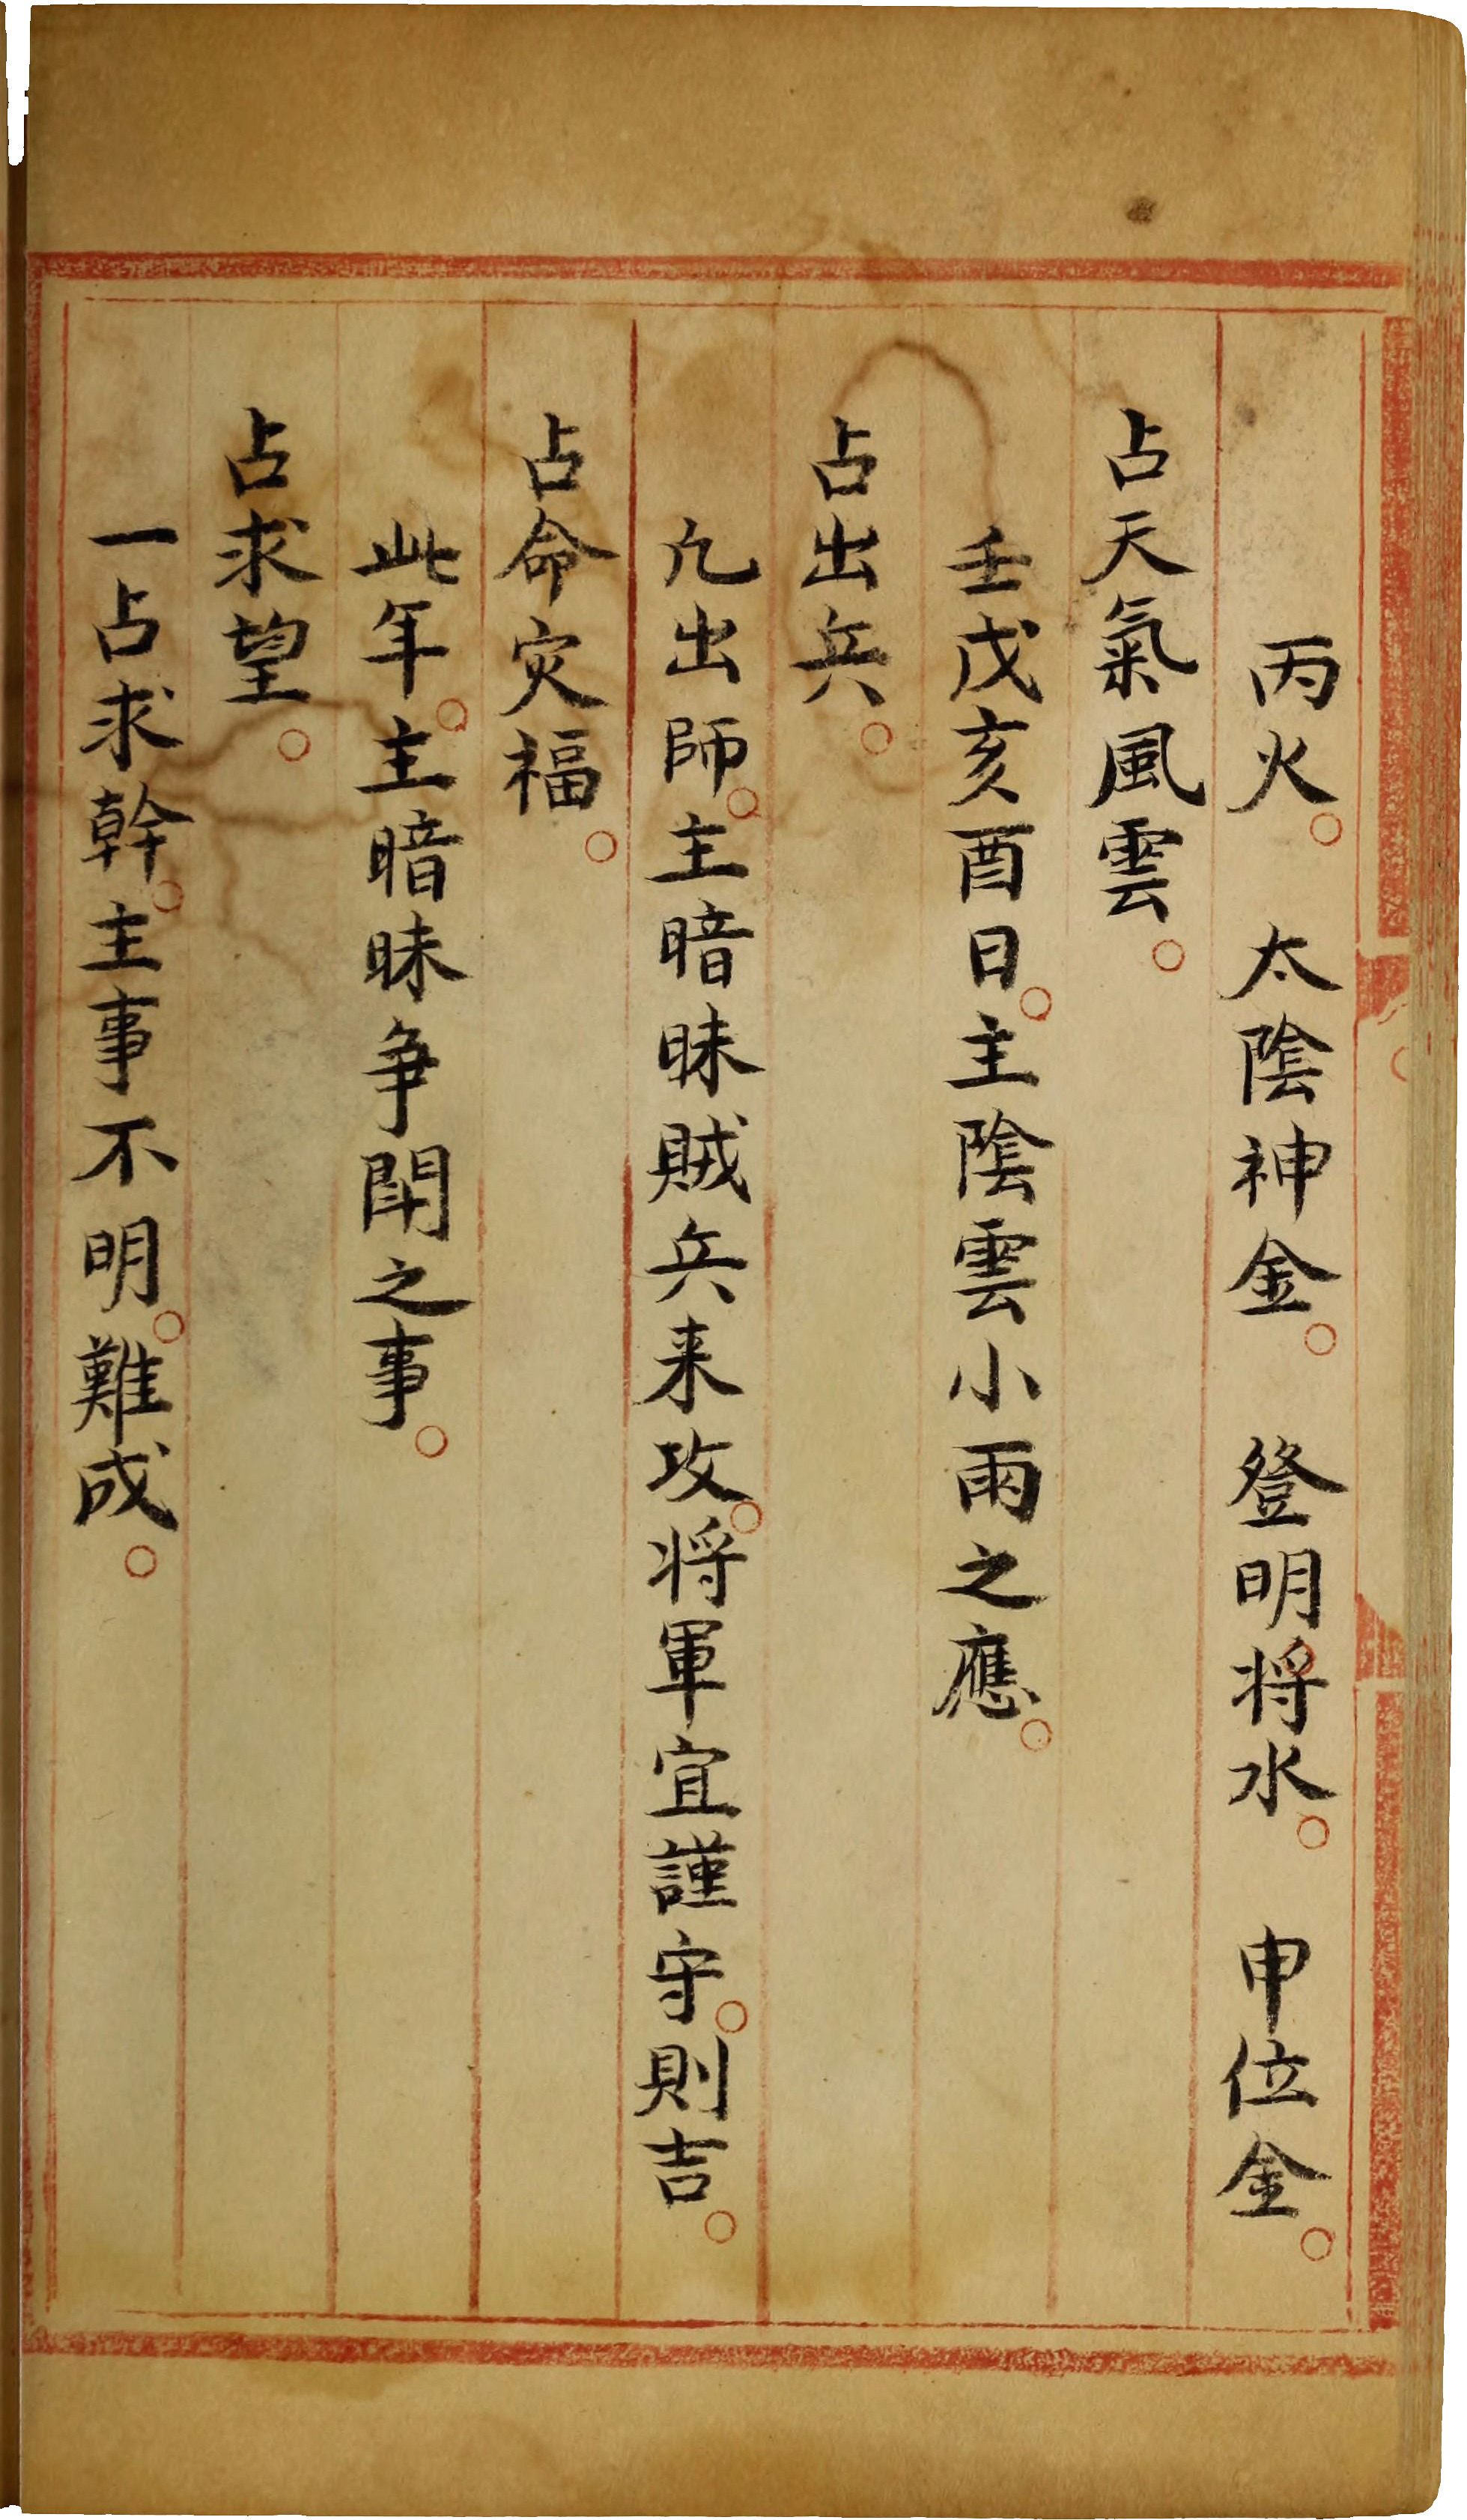 丙火。　太陰神金。　登明将水。　申位金。
占天氣風雲。
壬戊亥酉日。主陰雲小雨之應。
占出兵。
凢出師。主暗昧賊兵来攻。将軍宜謹守。則吉。
占命灾福。
此年。主暗昧争鬧之事。
占求望。
一占求幹。主事不明。難成。